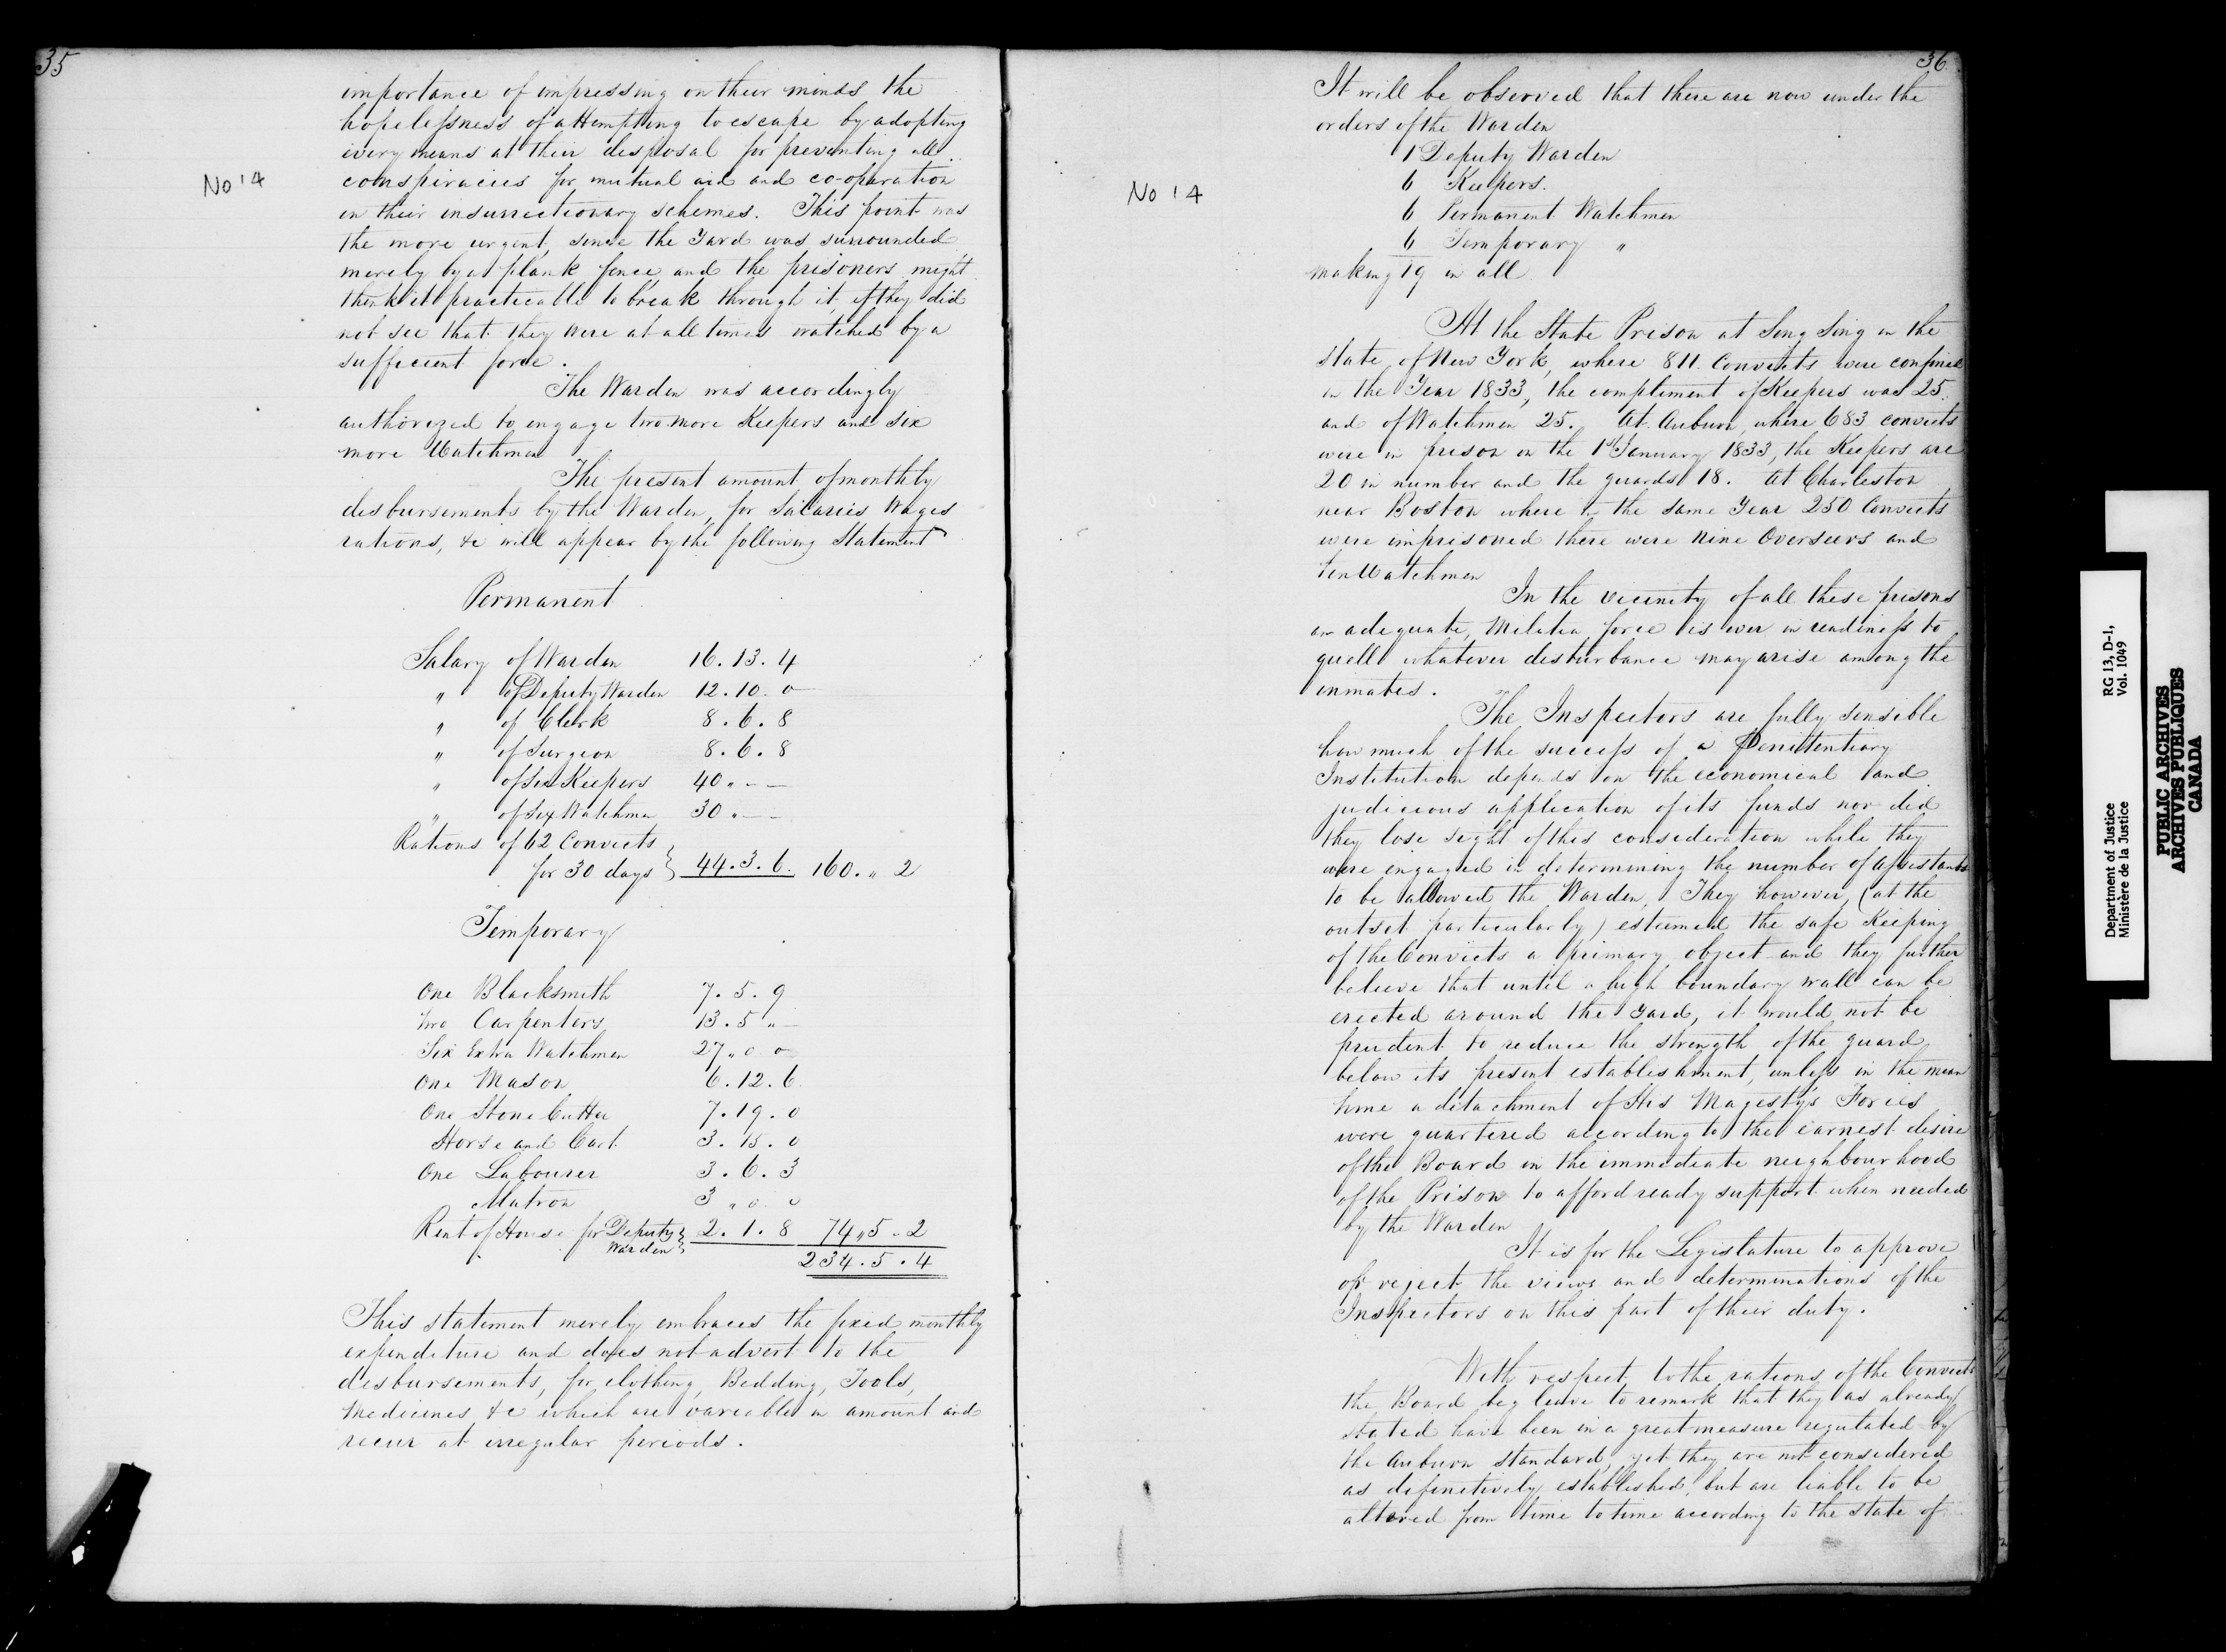 35
No 14
importance of impressing on their minds the
hopelessness of attempting to escape by adopting
every means at their disposal for preventing all
conspiracies for mutual aid and co-operation
in their insurrectionary schemes. This point was
the more urgent, since the Yard was surrounded
merely by a plank fence, and the prisoners might
think it practicable to break through it, if they did
not see that they were at all times watched by a
sufficient force.
The Warden was accordingly
authorized to engage two more Keepers and six
more Watchmen
The present amount of monthly
disbursements by the Warden, for Salaries Wages
rations, &c will appear by the following Statement
Permanent
Salary of Warden 16. 13. 4
" of Deputy Warden 12. 10. 0
" of Clerk 8. 6. 8
" of Surgeon 8. 6. 8
" of Six Keepers 40 " - -
" of Six Watchmen 30 " - -
Rations of 62 Convicts
for 30 days } 44. 3. 6. 160. " 2
Temporary
One Blacksmith 7. 5. 9
Two Carpenters 13. 5 " -
Six Extra Watchmen 27 " 0 0
One Mason 6. 12. 6
One Stone Cutter 7. 19. 0
Horse and Cart 3. 15. 0
One Labourer 3. 6. 3
Matron 3 " 0 0
Rent of House for Deputy Warden } 2. 1. 8 74 " 5 " 2
234. 5. 4
This statement merely embraces the fixed monthly
expenditure and does not advert to the
disbursements, for clothing, Bedding, Tools,
Medicines &c which are variable in amount and
recur at irregular periods.
36
No 14
It will be observed that there are now under the
orders of the Warden
1 Deputy Warden
6 Keepers.
6 Permanent Watchmen
6 Temporary "
making 19 in all
At the State Prison at Sing Sing in the
State of New York, where 811 Convicts were confined
in the Year 1833, the compliment of Keepers was 25
and of Watchmen 25. At Auburn, where 683 convicts
were in prison on the 1st January 1833, the Keepers are
20 in number and the guards 18. At Charleston
near Boston where in the same Year 250 Convicts
were imprisoned there were Nine Overseers and
ten Watchmen
In the vicinity of all these prisons
an adequate, Militia force is ever in readiness to
quell whatever disturbance may arise among the
inmates.
The Inspectors are fully sensible
how much of the success of a Penitentiary
Institution depends on the economical and
judicious application of its funds nor did
they lose sight of this consideration while they
were engaged in determining the number of Assistants
to be allowed the Warden, They however, (at the
outset particularly) esteemed the safe Keeping
of the Convicts a primary object and they further
believe that until a high boundary wall can be
erected around the Yard, it would not be
prudent to reduce the strength of the guard
below its present establishment, unless in the mean
time a detachment of His Magesty's Forces
were quartered according to the earnest desire
of the Board in the immediate neighbourhood
of the Prison to afford ready support when needed
by the Warden
It is for the Legislature to approve
or reject the views and determinations of the
Inspectors on this part of their duty.
With respect to the rations of the Convicts
the Board beg leave to remark that they as already
stated have been in a great measure regulated by
the Auburn standard, yet they are not considered
as definitively established, but are liable to be
altered from time to time according to the state of
Department of Justice RG 13, D-1,
Ministère de la Justice Vol. 1049
PUBLIC ARCHIVES
ARCHIVES PUBLIQUES
CANADA